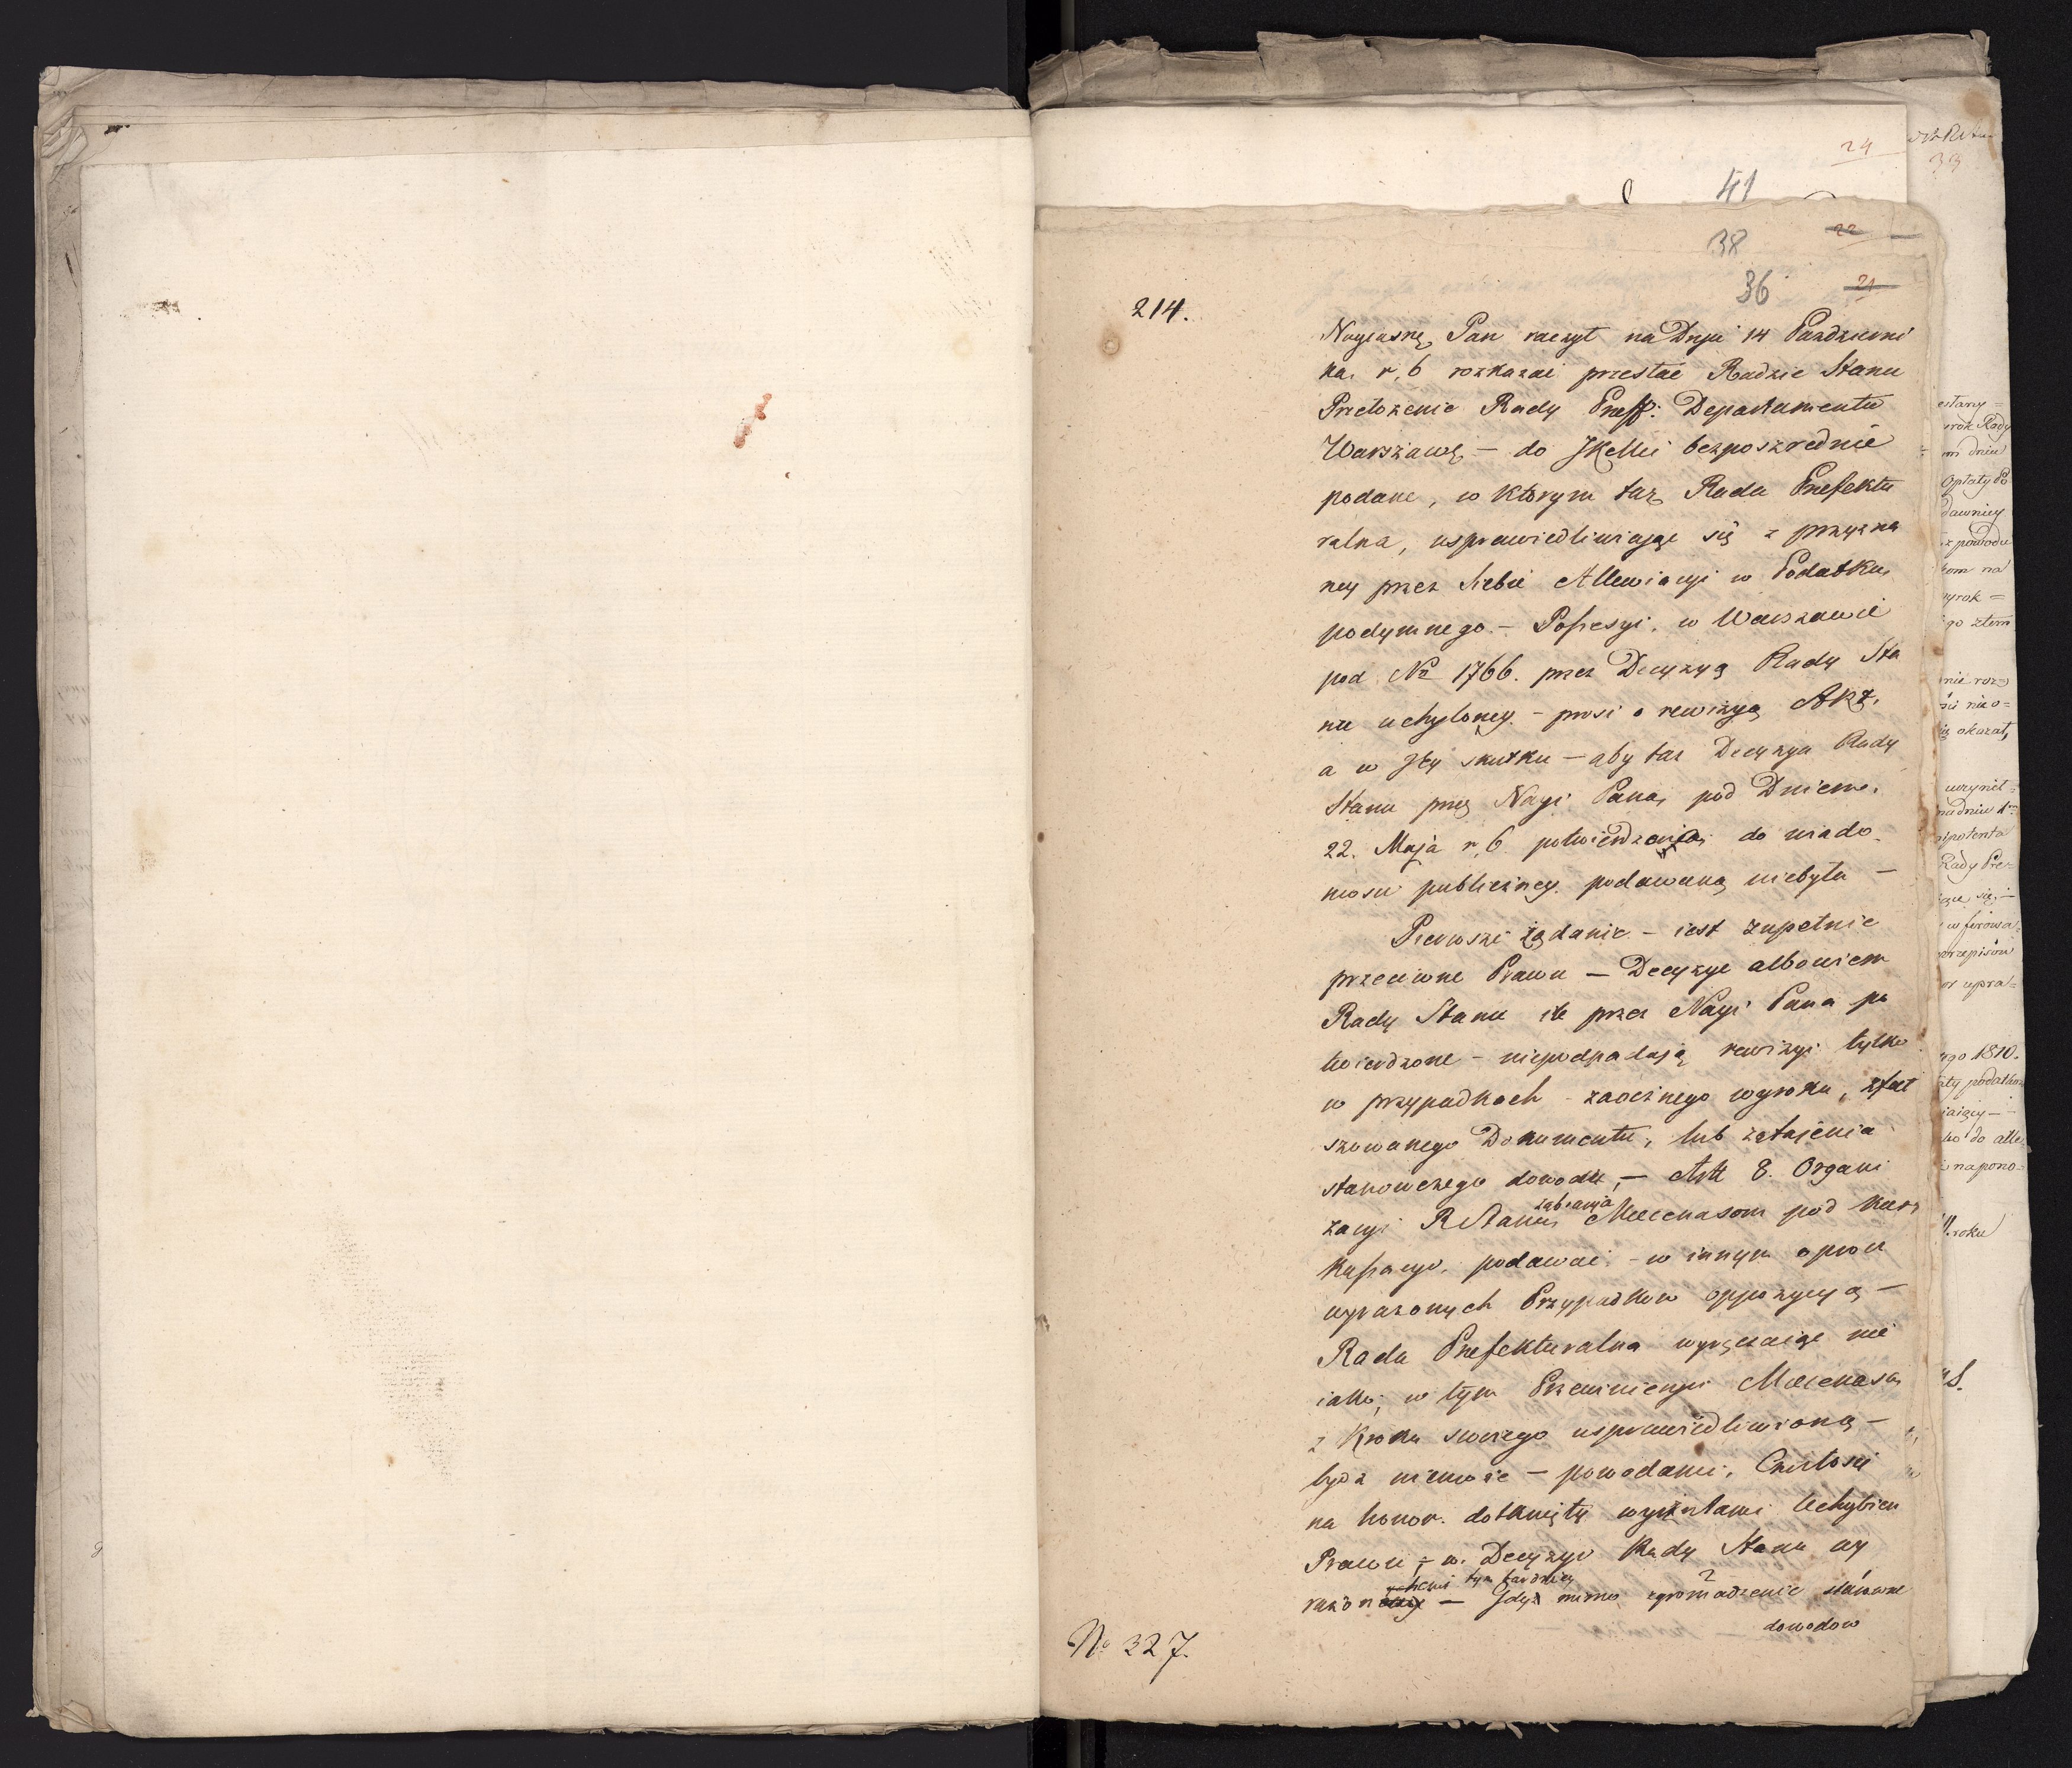 24
41
22
38
36
21
214.
Nayiasnę Pan raczył na Dniu 14 Pazdzierni
ka. r. b rozkazać przesłać Radzie Stanu
Przełożenie Rady Preff: Departamentu
Warszaws – do JKMci bezposzrednie
podane, w którym taż Rada Prefektu
ralna, usprawiedliwiaiąc się z przyzna
ney przez Siebie Allewiacyi w Podatku
podymnego – Possesyi w Warszawie
pod No 1766. przez Decyzyą Rady Sta
nu uchyloney – prosi o rewizyą Akt,
a w Jey skutku – aby taż Decyzya Rady
Stanu przez Nayi: Pana pod Dniem
22. Maja r. b potwierdzona do wiado
mosci publiczney podawaną niebyła –
Pierwsze żądanie – iest zupełnie
przeciwne Prawu – Decyzye albowiem
Rady Stanu ile przez Nayi Pana po
twierdzone – niepodpadaią rewizyi tylko
w przypadkach zaocznego wyroku, sfał
szowanego Dokumentu, lub zataienia
stanowczego dowodu, – Art 8. Organi
zacyi R Stanu zabrania Mecenasom pod karą
kassacyi, podawać – w innym oprocz
wyrażonych Przypadkow oppozycyą –
Rada Prefekturalna wyręczaiąc nie
iako, w tym Przewinieniu Mecenasa
z kroku swoiego usprawiedliwioną –
bydz niemoże – powodami, Czułosci
na honor dotknięty wyrzutami Uchybien
Prawu, – w Decyzyi Rady Stanu wy
rażon – tym bardziey Gdyż mimo zgromadzenie
dowodow
No 327.
33
Rady
dniu
Opłaty Po
dawniey
z powodu
na
okazał,
Rady Pre-
się, –
przepisow
1810.
roku